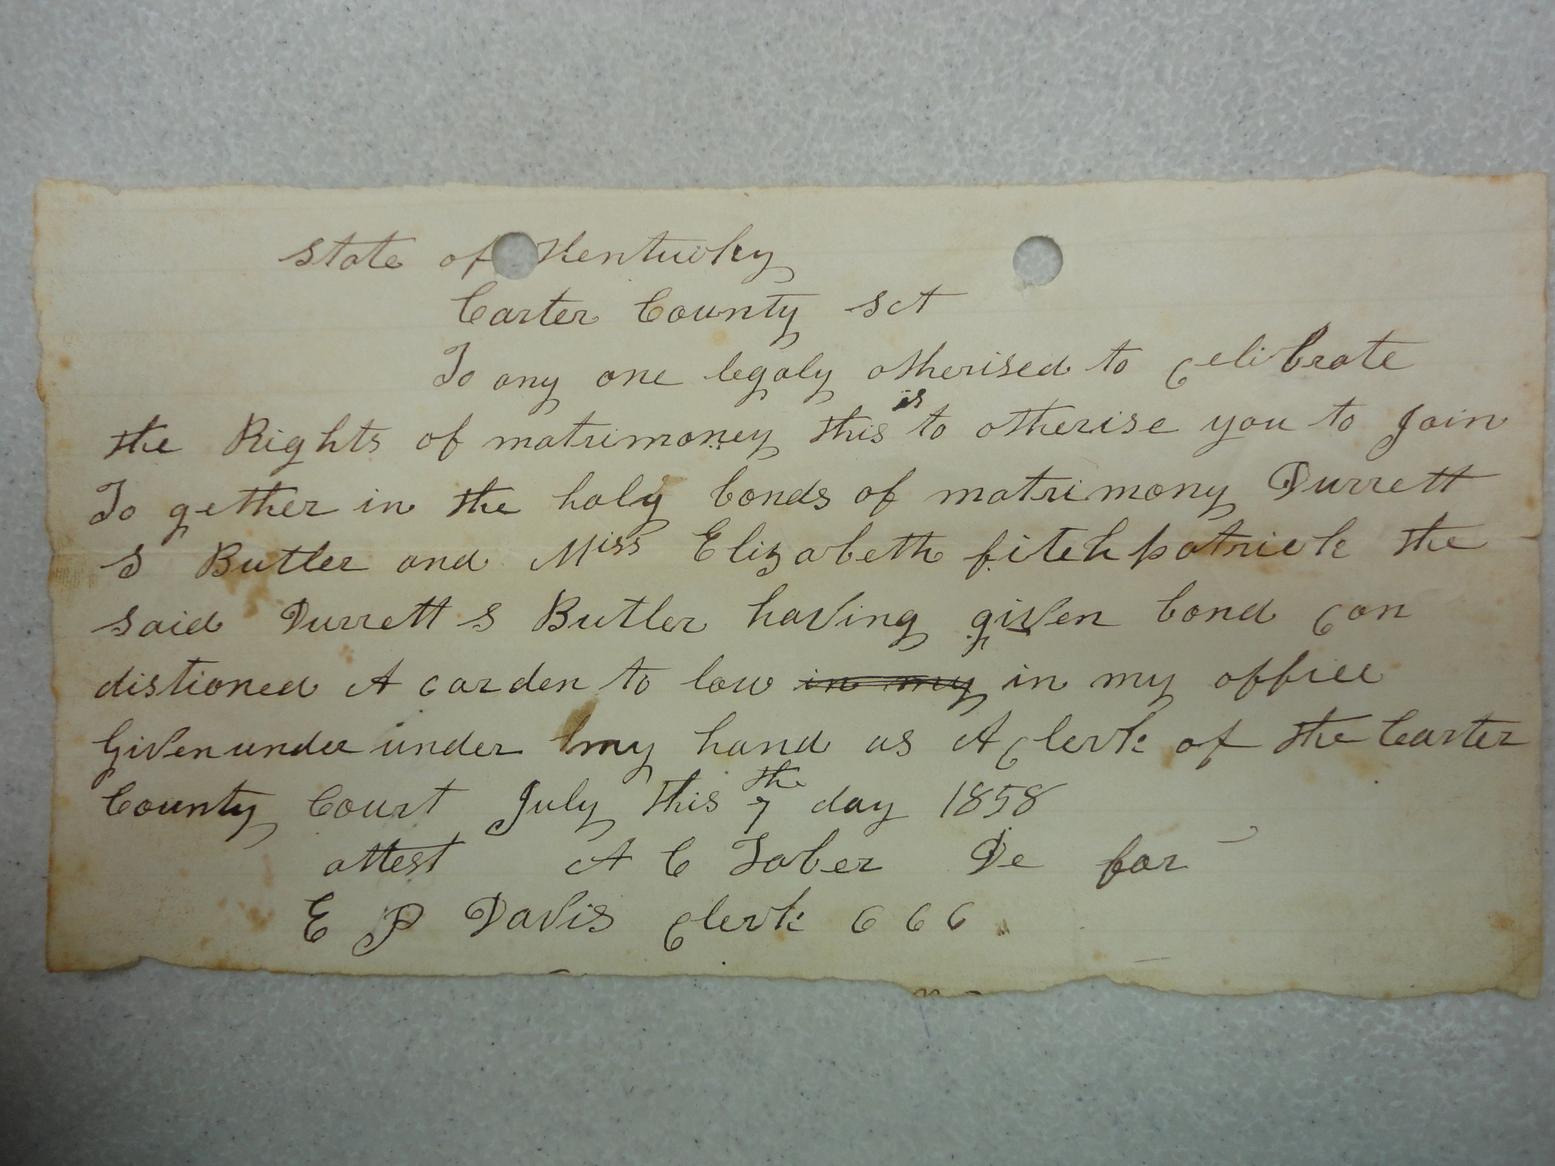 State of Kentucky
Carter County Sct
To any one legaly otherised to celibrate
the Rights of matrimoney this is to otherise you to Join
To gether in the holy bonds of matrimony Durrett
S Butler and Miss Elizabeth fitchpatrick the
said Durrett S Butler having given bond con
distioned A carden to law in my in my office
Given under under my hand as A clerk of the Carter
County Court July this 7th day 1858
attest A C Tober De for
E P Davis Clerk C C C